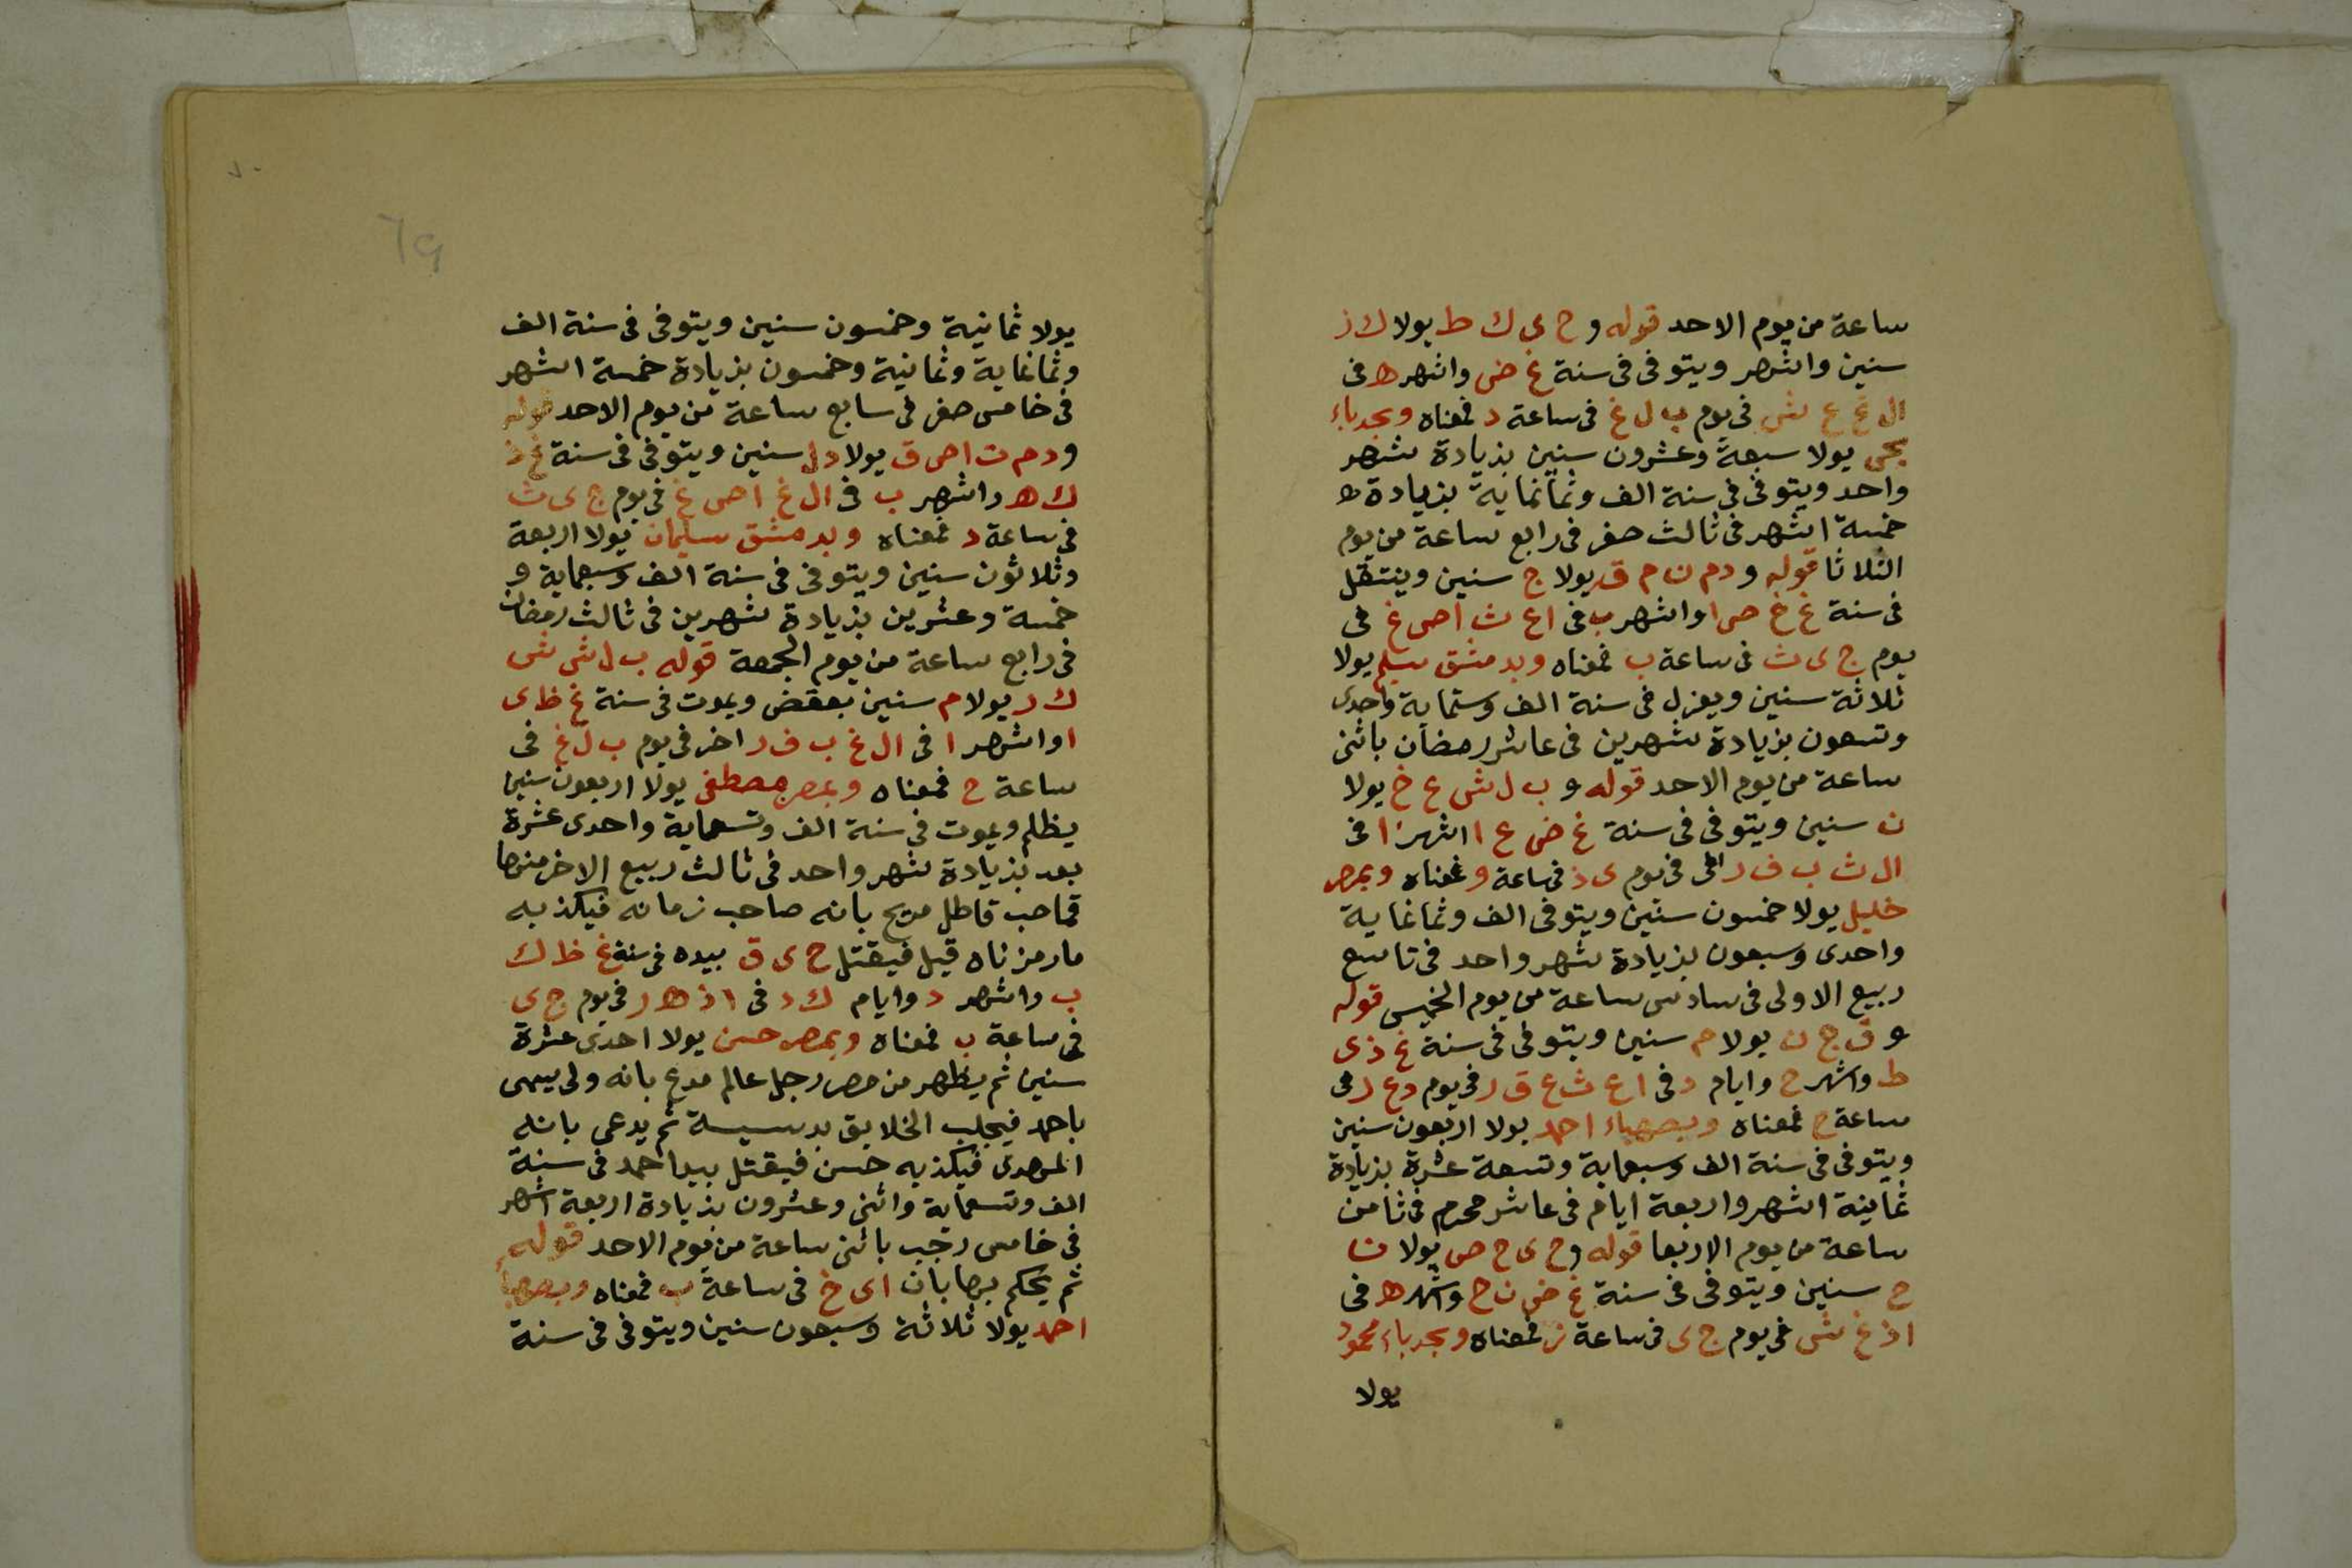 ساعة من يوم الاحد قوله و ح ى ك ط يولا ك ز
سنين واشهر ويتوفى فى سنة غ ض واشهر ه فى
ال غ ع ش فى يوم ب ل غ فى ساعة د فمعناه وبجدباء
يولا سبعة وعشرون سنين بزيادة شهر
واحد ويتوفى فى سنة الف وثمانماية بزيادة
خمسة اشهر فى ثالث صفر فى رابع ساعة من يوم
الثلاثا قوله و د م ن م ق يولا ج سنين وينتقل
فى سنة غ خ ص ا واشهر ب فى ا ع ث ا ص غ فى
يوم ج ى ث فى ساعة ب فمعناه وبدمشق سليم يولا
ثلاثة سنين ويعزل فى سنة الف وستماية واحدى
وتسعون بزيادة شهرين فى عاشر رمضان باثنى
ساعة من يوم الاحد قوله و ب ل ش ع خ يولا
ن سنين ويتوفى فى سنة غ ض ع ا اشهر ا فى
ال ث ب ف ر فى يوم ى ذ فى ساعة و فمعناه وبمصر
خليل يولا خمسون سنين ويتوفى الف وثمانماية
واحدى وسبعون بزيادة شهر واحد فى تاسع
ربيع الاولى فى سادس ساعة من يوم الخميس قوله
و ق ج ن يولا م سنين ويتوفى فى سنة غ ذ ى
ط واشهر ح وايام د فى ا ع ث ع ق ر فى يوم د ع ر فى
ساعة ح فمعناه وبصهباء احمد يولا اربعون سنين
ويتوفى فى سنة الف وسبعماية وتسعة عشرة بزيادة
ثمانية اشهر واربعة ايام فى عاشر محرم فى ثامن
ساعة من يوم الاربعا قوله و ح ى ح ص يولا ن
ح سنين ويتوفى فى سنة غ ض ن ح واشهر ه فى
ا ذ غ ش فى يوم ج ى فى ساعة ز فمعناه وبجدباء محمود
يولا
٧٠
٦٩
يولا ثمانية وخمسون سنين ويتوفى فى سنة الف
وثمانماية وثمانية وخمسون بزيادة خمسة اشهر
فى خامس صفر فى سابع ساعة من يوم الاحد قوله
و د م ت ا ص ق يولا د ل سنين ويتوفى فى سنة غ ذ
ك ه واشهر ب فى ال غ ا ص غ فى يوم ج ى ث
فى ساعة د فمعناه وبدمشق سليمان يولا اربعة
وثلاثون سنين ويتوفى فى سنة الف وسبعماية و
خمسة وعشرين بزيادة شهرين فى ثالث رمضان
فى رابع ساعة من يوم الجمعة قوله ب ل ش ش
ك ر يولا م سنين بعقض ويموت فى سنة غ ظ ى
ا واشهر ا فى ال غ ب ف ر اخر فى يوم ب ل غ فى
ساعة ح فمعناه وبمصر مصطفى يولا اربعون سنين
يظلم ويموت فى سنة الف وتسعماية واحدى عشرة
بعد بزيادة شهر واحد فى ثالث ربيع الاخر منها
بانه صاحب زمانه فيكذبه
قيل فيقتل ح ى ق بيده فى سنة غ ظ ك
ب واشهر د وايام ك د فى ا ذ ه ر فى يوم ج ى
فى ساعة ب فمعناه وبمصر حسن يولا احدى عشرة
سنين ثم يظهر من مصر رجل عالم مدع بانه ولى يسمى
باحمد فيجلب الخلايق بدسيسة ثم يدعى بانه
المهدى فيكذبه حسن فيقتل بيد احمد فى سنة
الف وتسعماية واثنى وعشرون بزيادة اربعة اشهر
فى خامس رجب باثنى ساعة من يوم الاحد قوله
ثم يحكم بها بان ا ى خ فى ساعة ب فمعناه وبصهباء
احمد يولا ثلاثة وسبعون سنين ويتوفى فى سنة